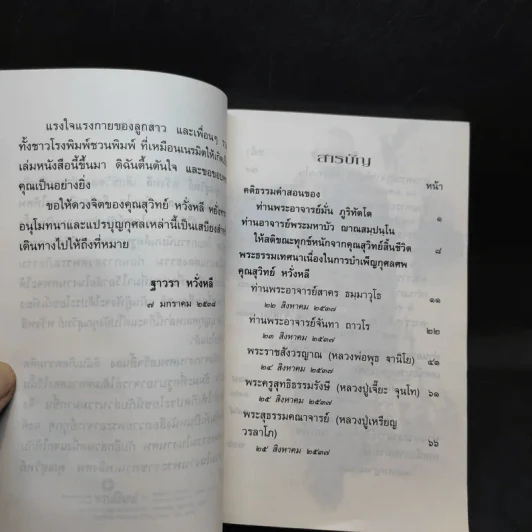 แรงใจแรงกายของลูกสาว และเพื่อนๆ
ทั้งชาวโรงพิมพ์ชวนพิมพ์ ที่เหมือนเนรมิตให้เกิด
เล่มหนังสือนี้ขึ้นมา ดิฉันตื้นตันใจ และขอ
คุณเป็นอย่างยิ่ง
ขอให้ดวงจิตของคุณสุวิทย์ หวั่งหลี
อนุโมทนาและแปรบุญกุศลเหล่านี้เป็นเสบียง
เดินทางไปให้ถึงที่หมาย
ฐาวรา หวั่งหลี
๗ มกราคม ๒๕๓๘
สารบัญ
หน้า
คติธรรมคำสอนของ
ท่านพระอาจารย์มั่น ภูริทัตโต ๑
ท่านอาจารย์พระมหาบัว ญาณสมฺปนฺโน
ให้สติขณะทุกข์หนักจากคุณสุวิทย์สิ้นชีวิต ๘
พระธรรมเทศนาเนื่องในการบำเพ็ญกุศลศพ
คุณสุวิทย์ หวั่งหลี
ท่านพระอาจารย์สาคร ธมฺมาวุโธ ๑๑
๒๒ สิงหาคม ๒๕๓๗
ท่านพระอาจารย์จันทา ถาวโร ๒๒
๒๓ สิงหาคม ๒๕๓๗
พระราชสังวรญาณ (หลวงพ่อพุธ ฐานิโย) ๔๑
๒๔ สิงหาคม ๒๕๓๗
พระครูสุทธิธรรมรังษี (หลวงปู่เจี๊ยะ จุนโท) ๖๑
๒๕ สิงหาคม ๒๕๓๗
พระสุธรรมคณาจารย์ (หลวงปู่เหรียญ
วรลาโภ) ๖๖
๒๕ สิงหาคม ๒๕๓๗